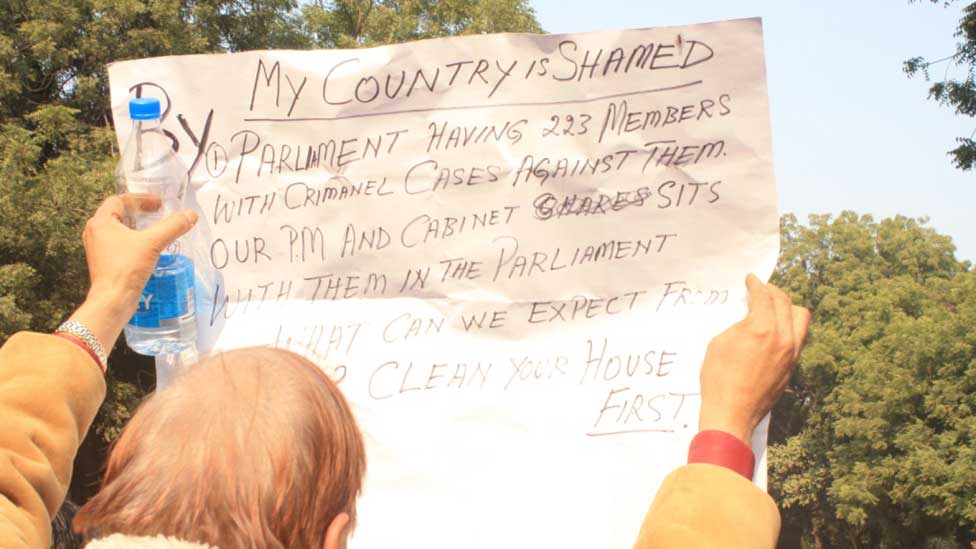 MY COUNTRY IS SHAME'D
By
① PARLIAMENT HAVING 223 MEMBERS
WITH CRIMANEL CASES AGAINST THEM.
OUR P.M AND CABINET SITS
WITH THEM IN THE PARLIAMENT
WHAT CAN WE EXPECT FROM
? CLEAN YOUR HOUSE
FIRST.